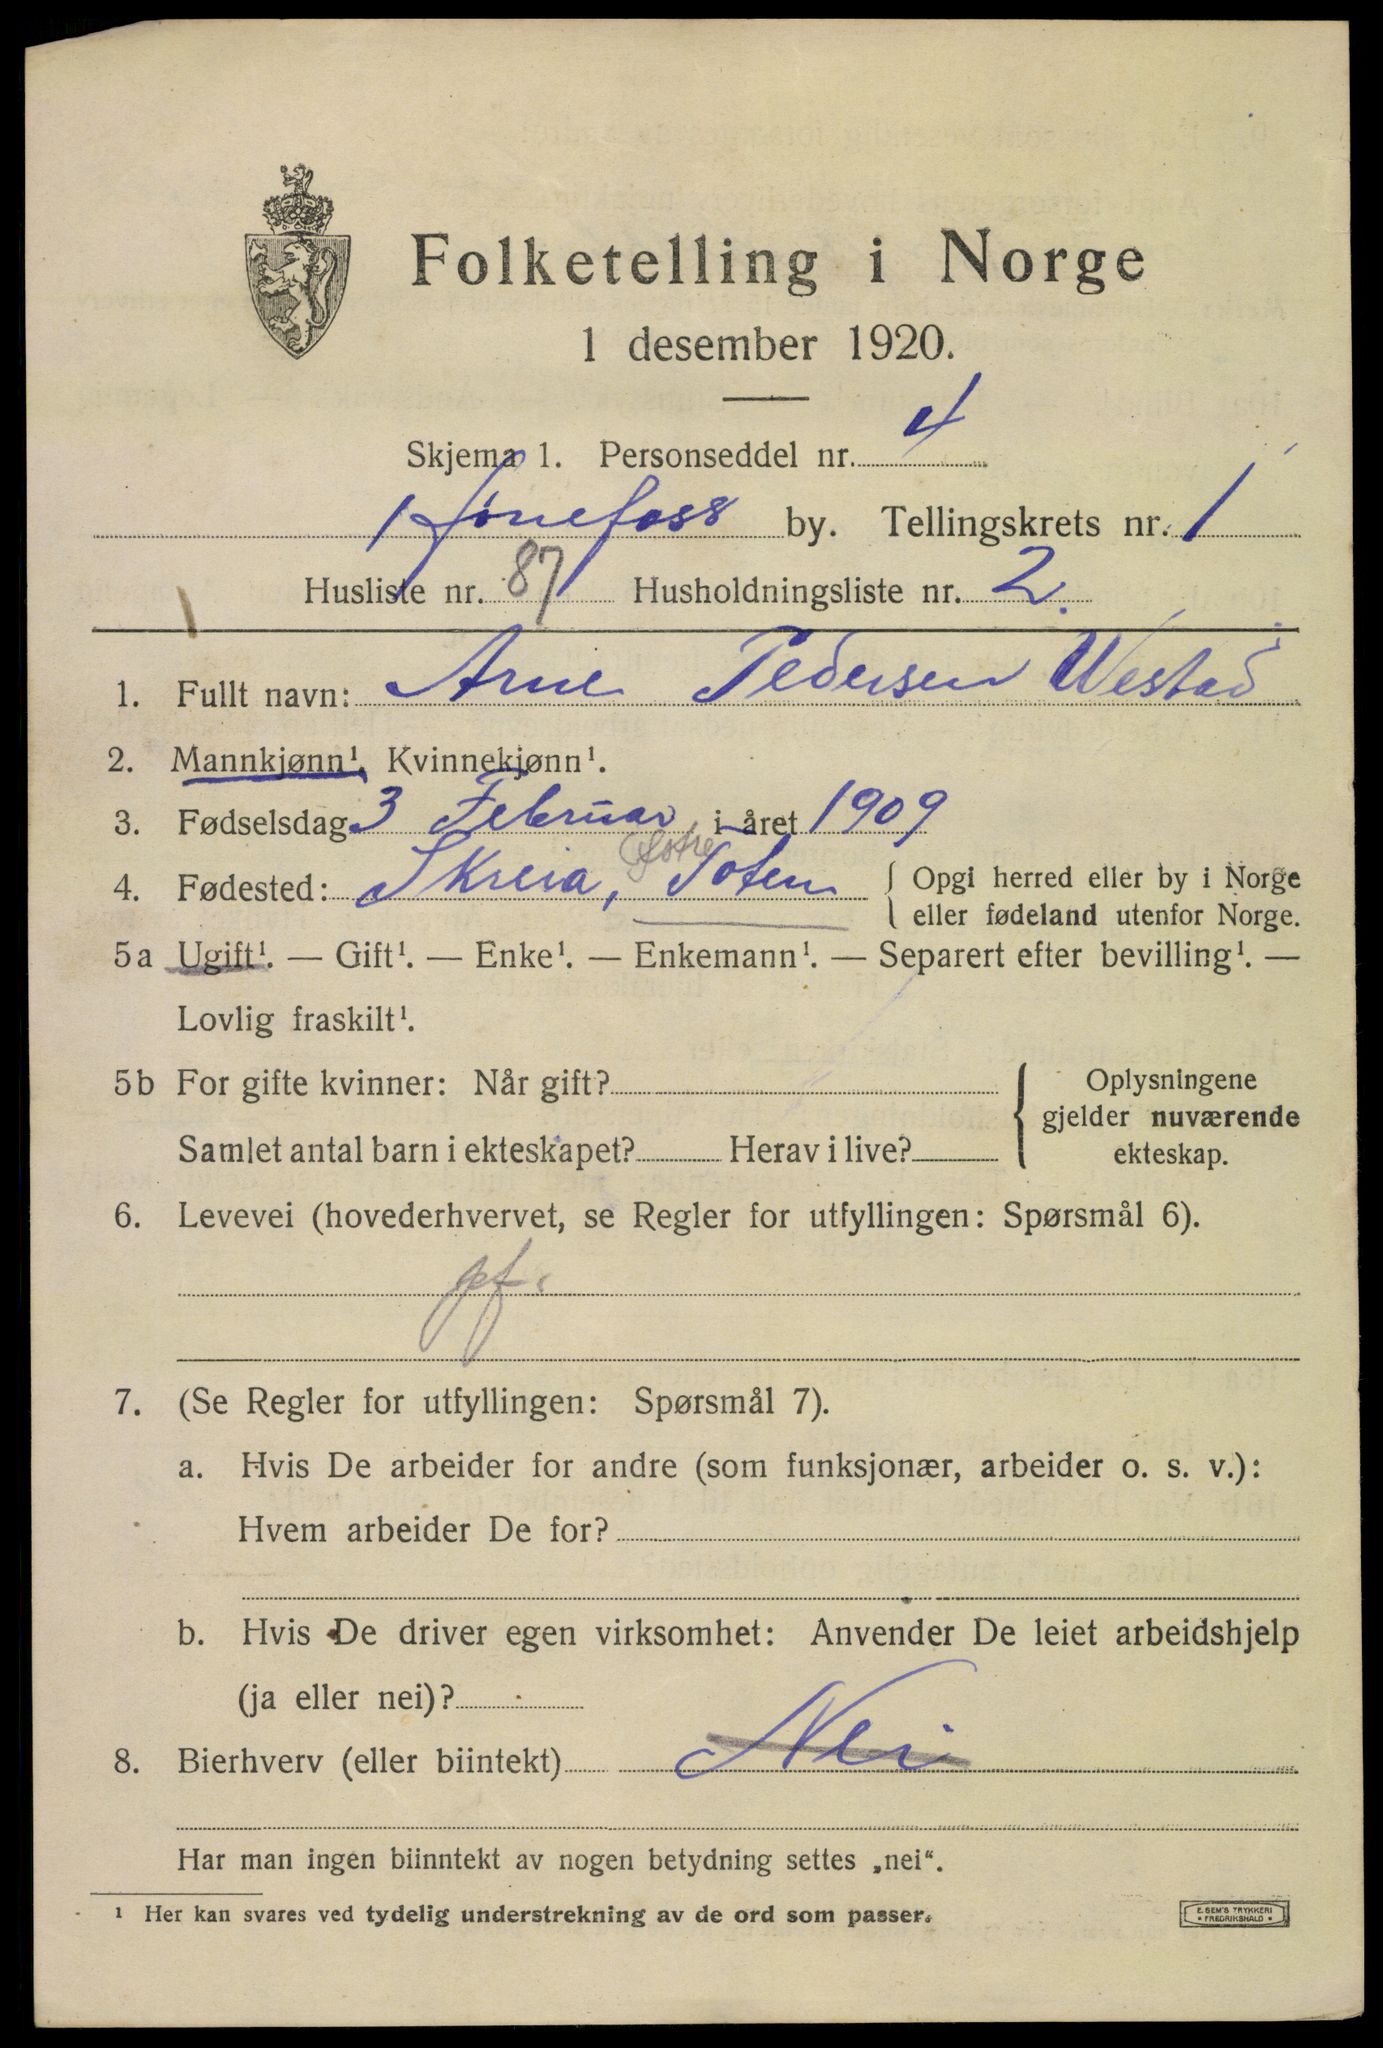 Folketelling i Norge
1 desember 1920.
Skjema 1. Personseddel nr. 4
Hønefoss by. Tellingskrets nr. 1
Husliste nr. 87 Husholdningsliste nr. 2.
1. Fullt navn: Arne Pedersen Westad
2. Mannkjønn¹. Kvinnekjønn¹.
3. Fødselsdag 3 Februar i året 1909
Østre
4. Fødested: Skreia, Toten { Opgi herred eller by i Norge
eller fødeland utenfor Norge.
5a Ugift¹. — Gift¹. — Enke¹. — Enkemann¹. — Separert efter bevilling¹. —
Lovlig fraskilt¹.
5b For gifte kvinner: Når gift? { Oplysningene
gjelder nuværende
Samlet antal barn i ekteskapet? Herav i live? ekteskap.
6. Levevei (hovederhvervet, se Regler for utfyllingen: Spørsmål 6).
pf.
7. (Se Regler for utfyllingen: Spørsmål 7).
a. Hvis De arbeider for andre (som funksjonær, arbeider o. s. v.):
Hvem arbeider De for?
b. Hvis De driver egen virksomhet: Anvender De leiet arbeidshjelp
(ja eller nei)?
8. Bierhverv (eller biintekt) Nei
Har man ingen biinntekt av nogen betydning settes „nei“.
¹ Her kan svares ved tydelig understrekning av de ord som passer.
E. SEM'S TRYKKERI
FREDRIKSHALD